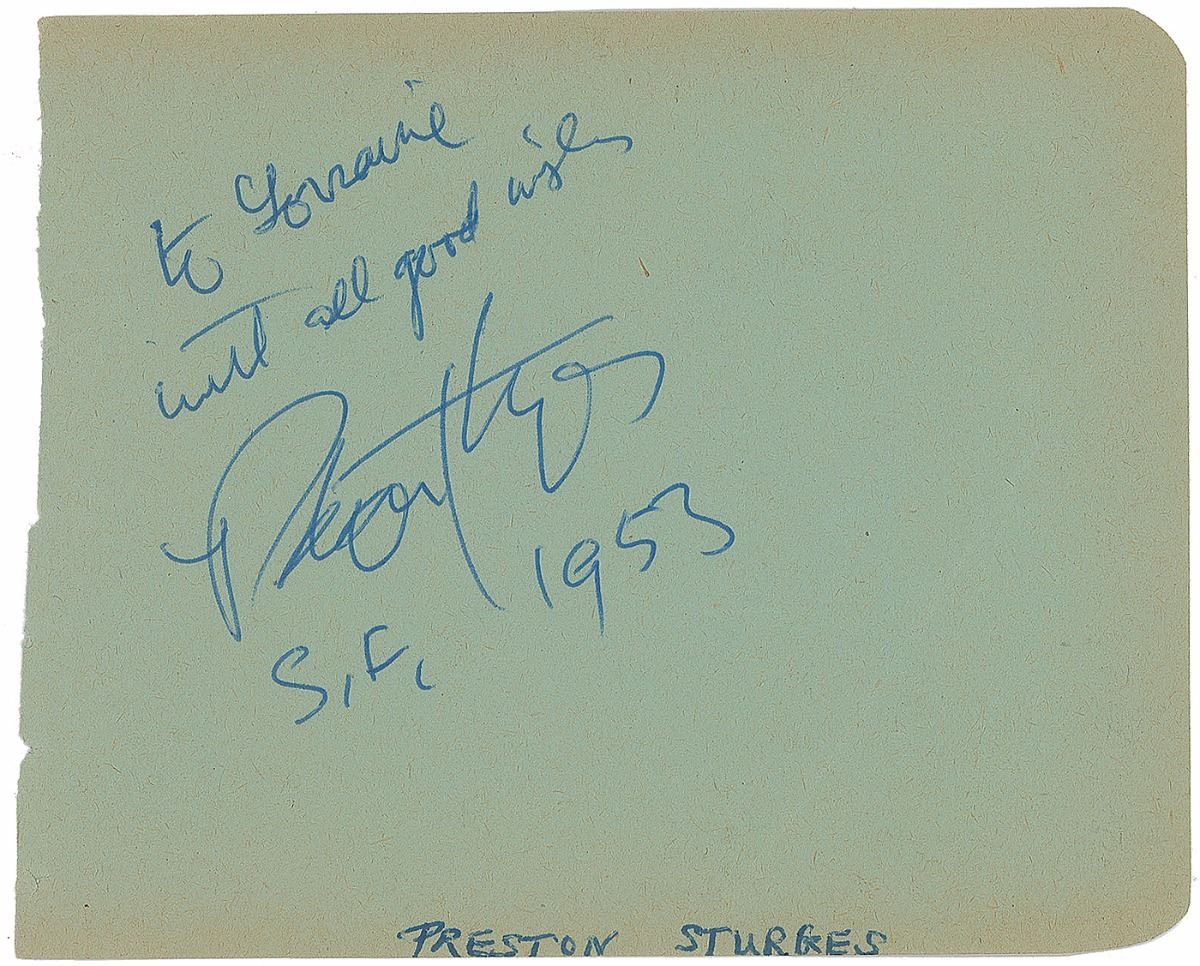 to Lorraine
with all good wishes
Preston Sturges
1953
S.F.
PRESTON STURGES